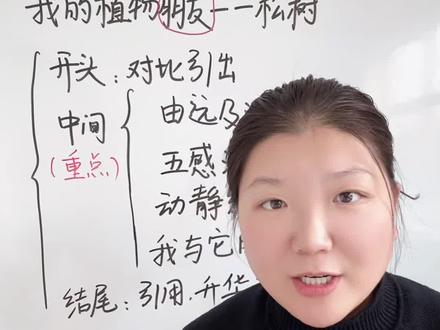 我的植物朋友——松树
开头：对比引出
中间
(重点)
由远及
五感
动静
我与它
结尾：引用.升华